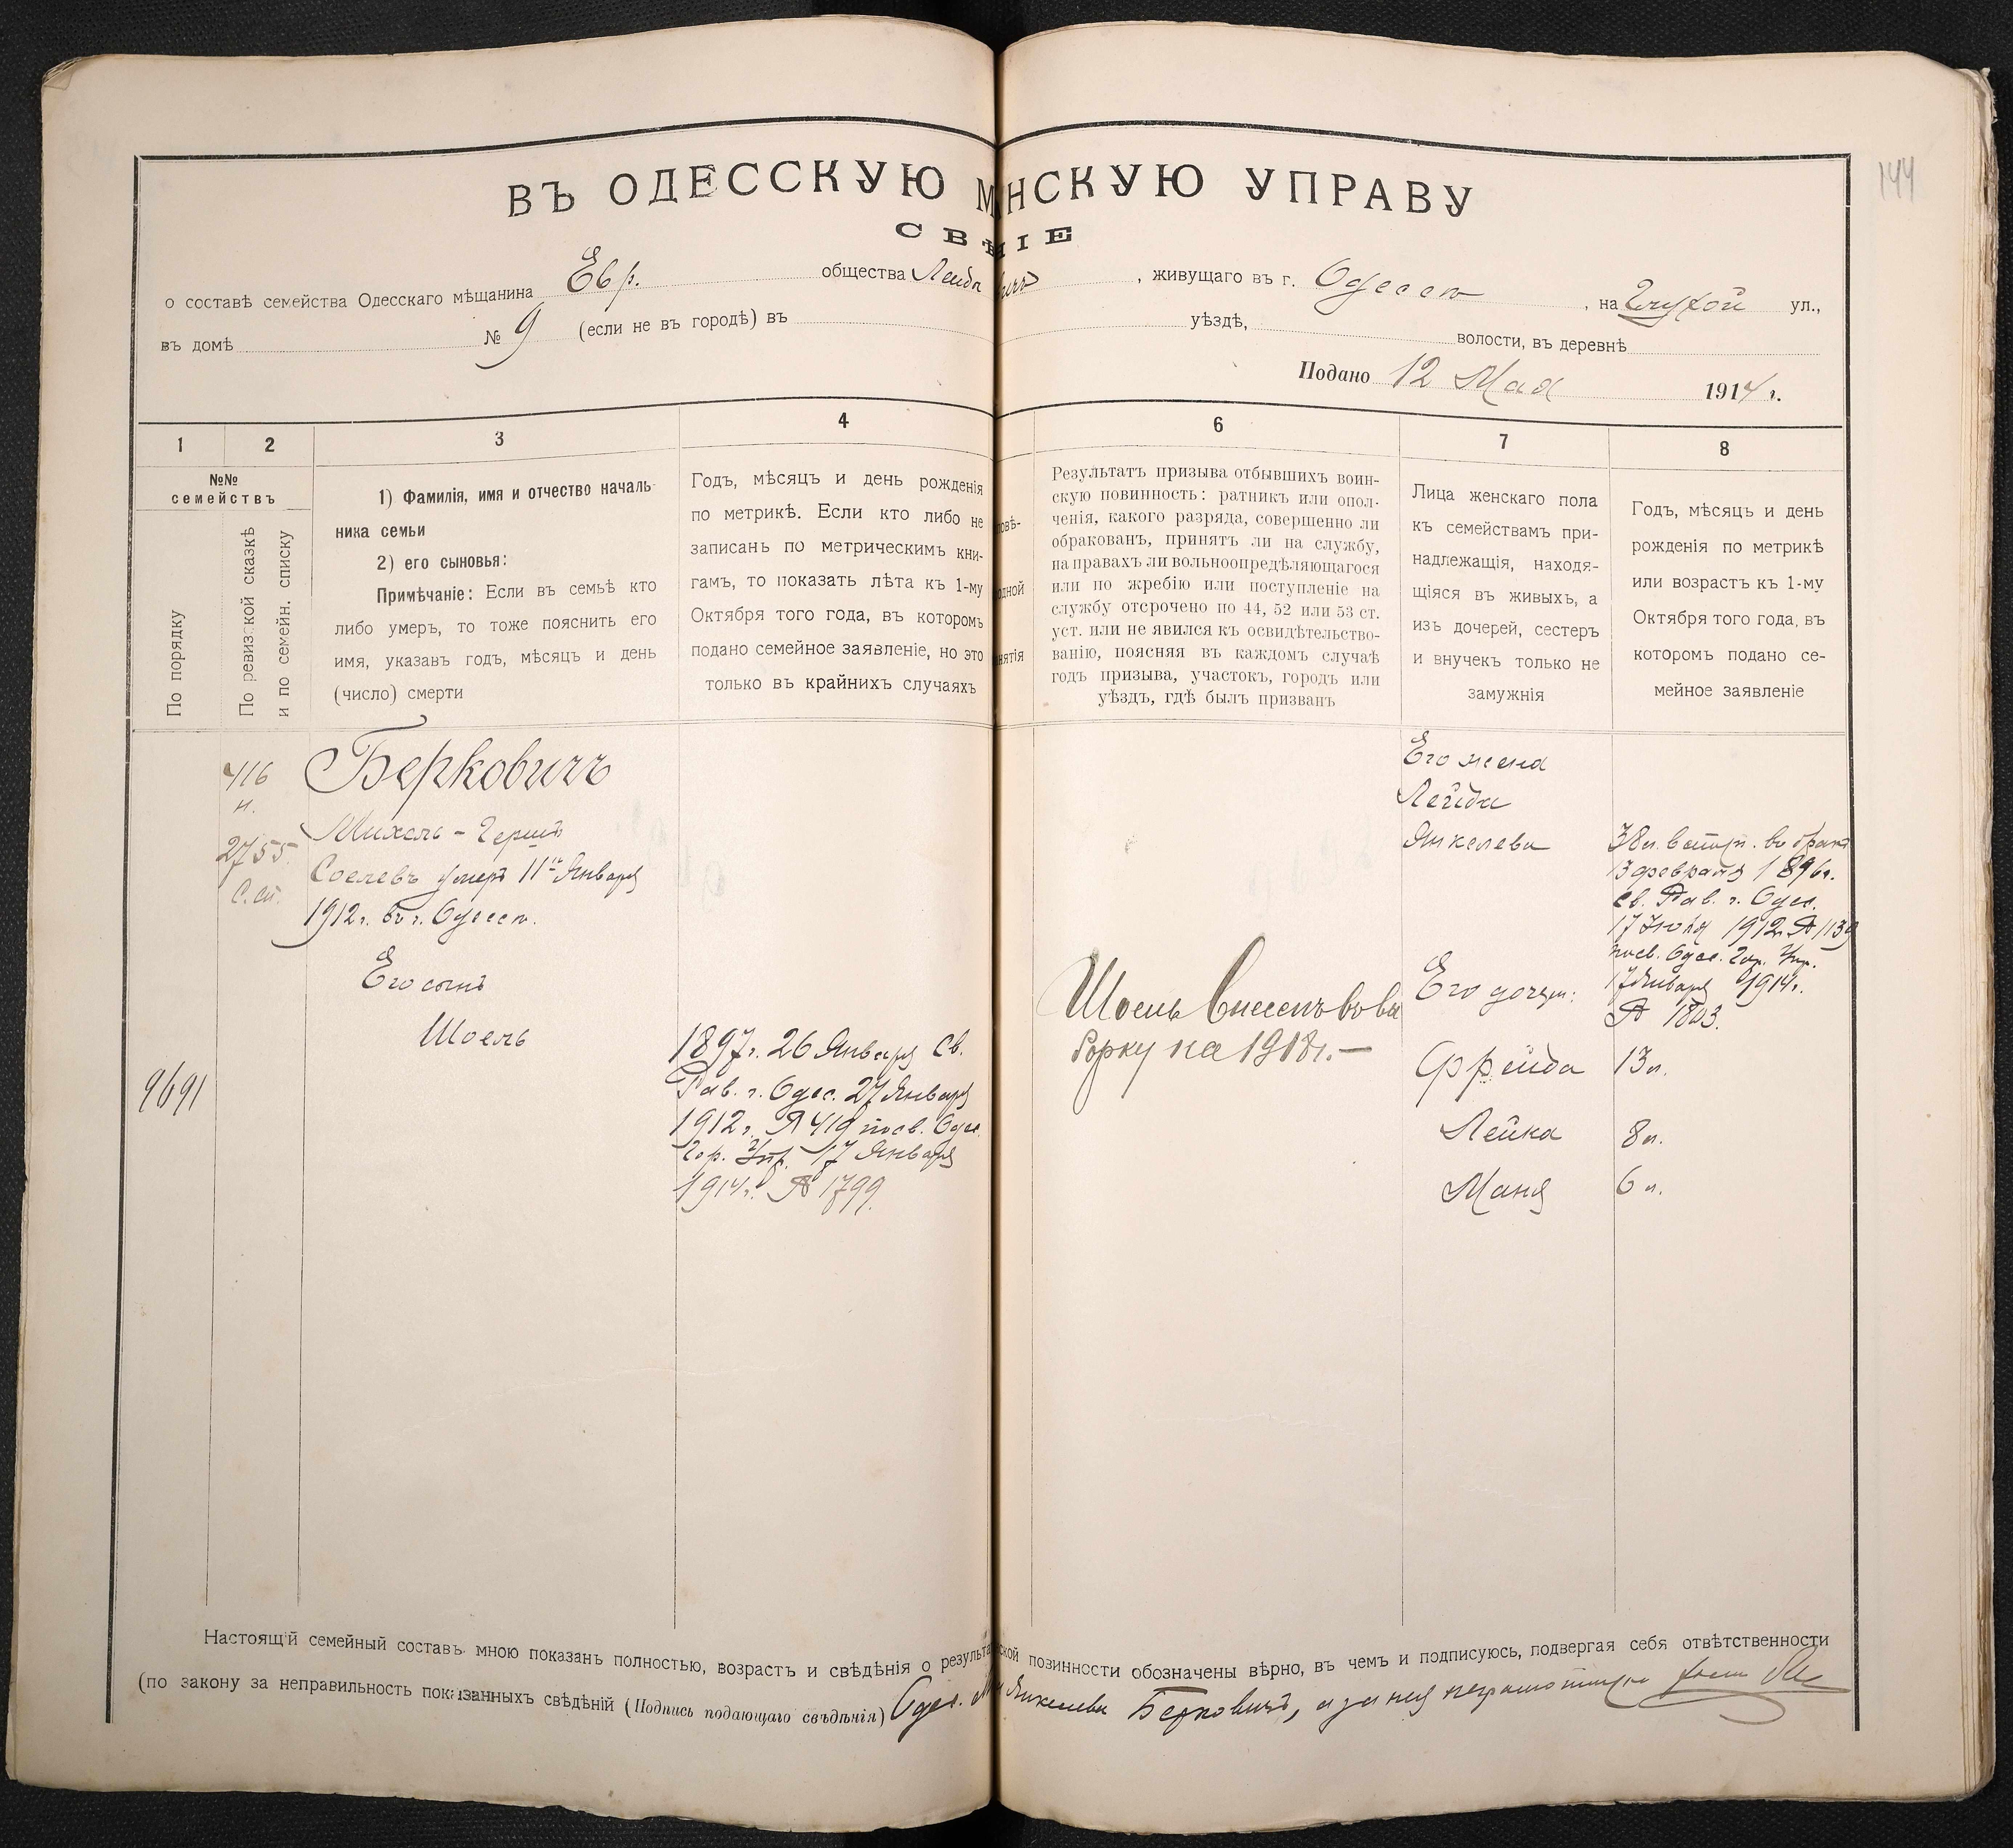 144
ВЪ ОДЕССКУЮ М НСКУЮ УПРАВУ
СВѢ НІЕ
о составѣ семейства Одесскаго мѣщанина Евр. общества Лейда , живущаго въ г. Одессѣ , на Глухой ул.,
въ домѣ № 9 (если не въ городѣ) въ уѣздѣ, волости, въ деревнѣ
Подано 12 Мая 1914 г.
1 2 3 4 6 7 8
№№
семействъ
По порядку
По ревизской сказкѣ
и по семейн. списку
1) Фамилія, имя и отчество началь-
ника семьи
2) его сыновья:
Примѣчаніе: Если въ семьѣ кто
либо умеръ, то тоже пояснить его
имя, указавъ годъ, мѣсяцъ и день
(число) смерти
Годъ, мѣсяцъ и день рожденія
по метрикѣ. Если кто либо не
записанъ по метрическимъ кни-
гамъ, то показать лѣта къ 1-му
Октября того года, въ которомъ
подано семейное заявленіе, но это
только въ крайнихъ случаяхъ
повѣ-
одной
нятія
Результатъ призыва отбывшихъ воин-
скую повинность: ратникъ или опол-
ченія, какого разряда, совершенно ли
обракованъ, принятъ ли на службу,
на правахъ ли вольноопредѣляющагося
или по жребію или поступленіе на
службу отсрочено по 44, 52 или 53 ст.
уст. или не явился къ освидѣтельство-
ванію, поясняя въ каждомъ случаѣ
годъ призыва, участокъ, городъ или
уѣздъ, гдѣ былъ призванъ
Лица женскаго пола
къ семействамъ при-
надлежащія, находя-
щіяся въ живыхъ, а
изъ дочерей, сестеръ
и внучекъ только не
замужнія
Годъ, мѣсяцъ и день
рожденія по метрикѣ
или возрастъ къ 1-му
Октября того года, въ
которомъ подано се-
мейное заявленіе
416
н.
2755
С. сп.
9691
Берковичъ
Михель-Гершъ
Соелевъ умеръ 11го Января
1912 г. въ г. Одессѣ.
Его сынъ
Шоель
1897 г. 26 Января св.
Рав. г. Одес. 27 Января
1912 г. № 419 посв. Одес.
Гор. Упр. 17 Января
1914 г. № 1799.
Шоель внесенъ въ вы
борку на 1918 г. —
Его жена
Лейда
Янкелева
Его дочери:
Фрейда
Лейка
Маня
38 л. вступ. въ бракъ
13 февраля 1896 г.
св. Рав. г. Одес.
17 Іюля 1912 г. № 1139
посв. Одес. Гор. Упр.
17 Января 1914 г.
№ 1803.
13 л.
8 л.
6 л.
Настоящій семейный составъ мною показанъ полностью, возрастъ и свѣдѣнія о результа ской повинности обозначены вѣрно, въ чемъ и подписуюсь, подвергая себя отвѣтственности
(по закону за неправильность показанныхъ свѣдѣній (Подпись подающаго свѣдѣнія) Одес. Янкелева Берковичъ, а за нея неграмотную